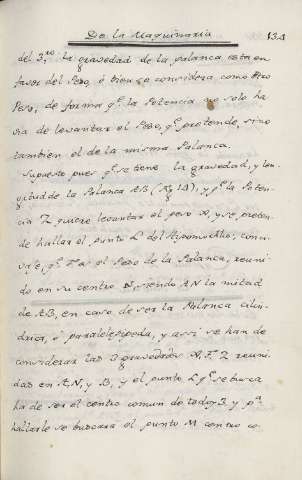 De la Maquinaria
134
del 3.ro La gravedad de la palanca esta en
favor del Peso, ó bien se considera como otro
Peso, de forma q.e la Potencia no solo ha
via de levantar el Peso, q.e pretende, sino
tambien el de la misma Palanca.
Supuesto pues q.e se tiene la gravedad, y lon
gitud de la Palanca AB, (Fig 19), y q.e la Poten
cia Z quiere levantar el peso N, y se preten
de hallar el punto L del Hipomoclio; conci
vase, q.e F es el Peso de la Palanca, reuni
do en su centro N, siendo AN la mitad
de AB, en caso de ser la Palanca cilin
drica, ó paralelepipeda, y assi se han de
considerar las 3 gravedades N, F, Z reuni
das en A, N, y B, y el punto L q.e se busca
ha de ser el centro comun de todos 3. y p.a
hallarle se buscara el punto M centro co